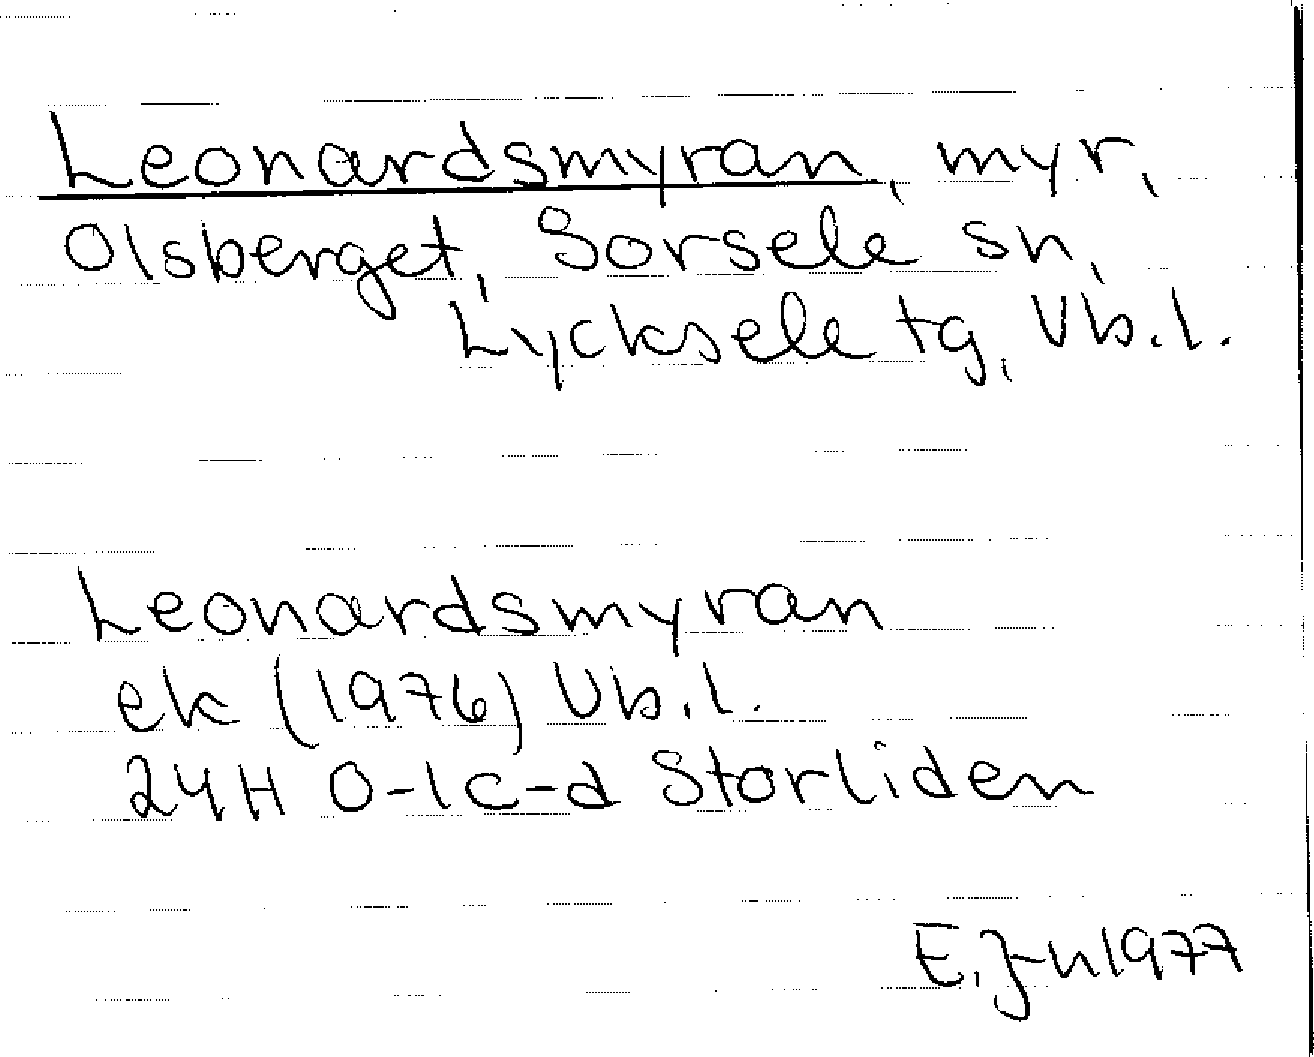 Leonardsmyran, myr,
Olsberget, Sorsele sn,
Lycksele tg, Vb.l.
Leonardsmyran
ek (1976) Vb.l.
24H 0-1c-d Storliden
E.J-n 1977